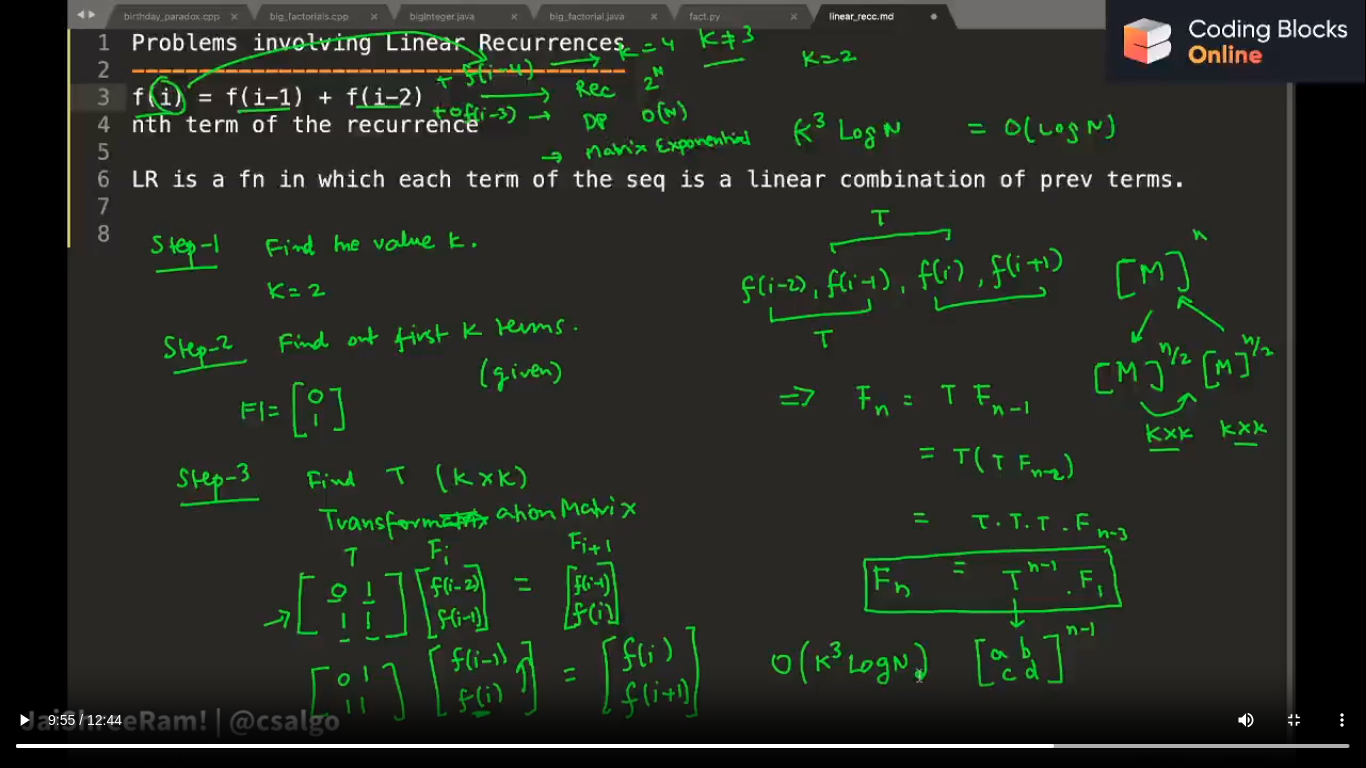 birthday_paradox.cpp × big_factorials.cpp × bigInteger.java × big_factorial.java × fact.py × linear_recc.md
Coding Blocks
Online
1 Problems involving Linear Recurrences
2 --------------------------------
3 f(i) = f(i-1) + f(i-2)
4 nth term of the recurrence
5
6 LR is a fn in which each term of the seq is a linear combination of prev terms.
7
8
+ f(i-4) → K=4 K≠3 K=2
→ Rec 2^N
+ 0f(i-3) → DP O(N)
→ Matrix Exponential K³ LogN = O(LogN)
Step-1 Find the value K.
K=2
Step-2 Find out first K terms.
(given)
F1= [0
1]
Step-3 Find T (KxK)
Transformation Matrix
T Fi Fi+1
[0 1
1 1] [f(i-2)
f(i-1)] = [f(i-1)
f(i)]
[0 1
1 1] [f(i-1)
f(i)] = [f(i)
f(i+1)]
T
f(i-2), f(i-1), f(i), f(i+1)
T
[M]^n
[M]^n/2 [M]^n/2
KxK KxK
=> Fn = T Fn-1
= T(T Fn-2)
= T.T.T.Fn-3
Fn = T^n-1 . F1
O(K³ LogN) [a b
c d]^n-1
JaiShreeRam! | @csalgo
9:55 / 12:44